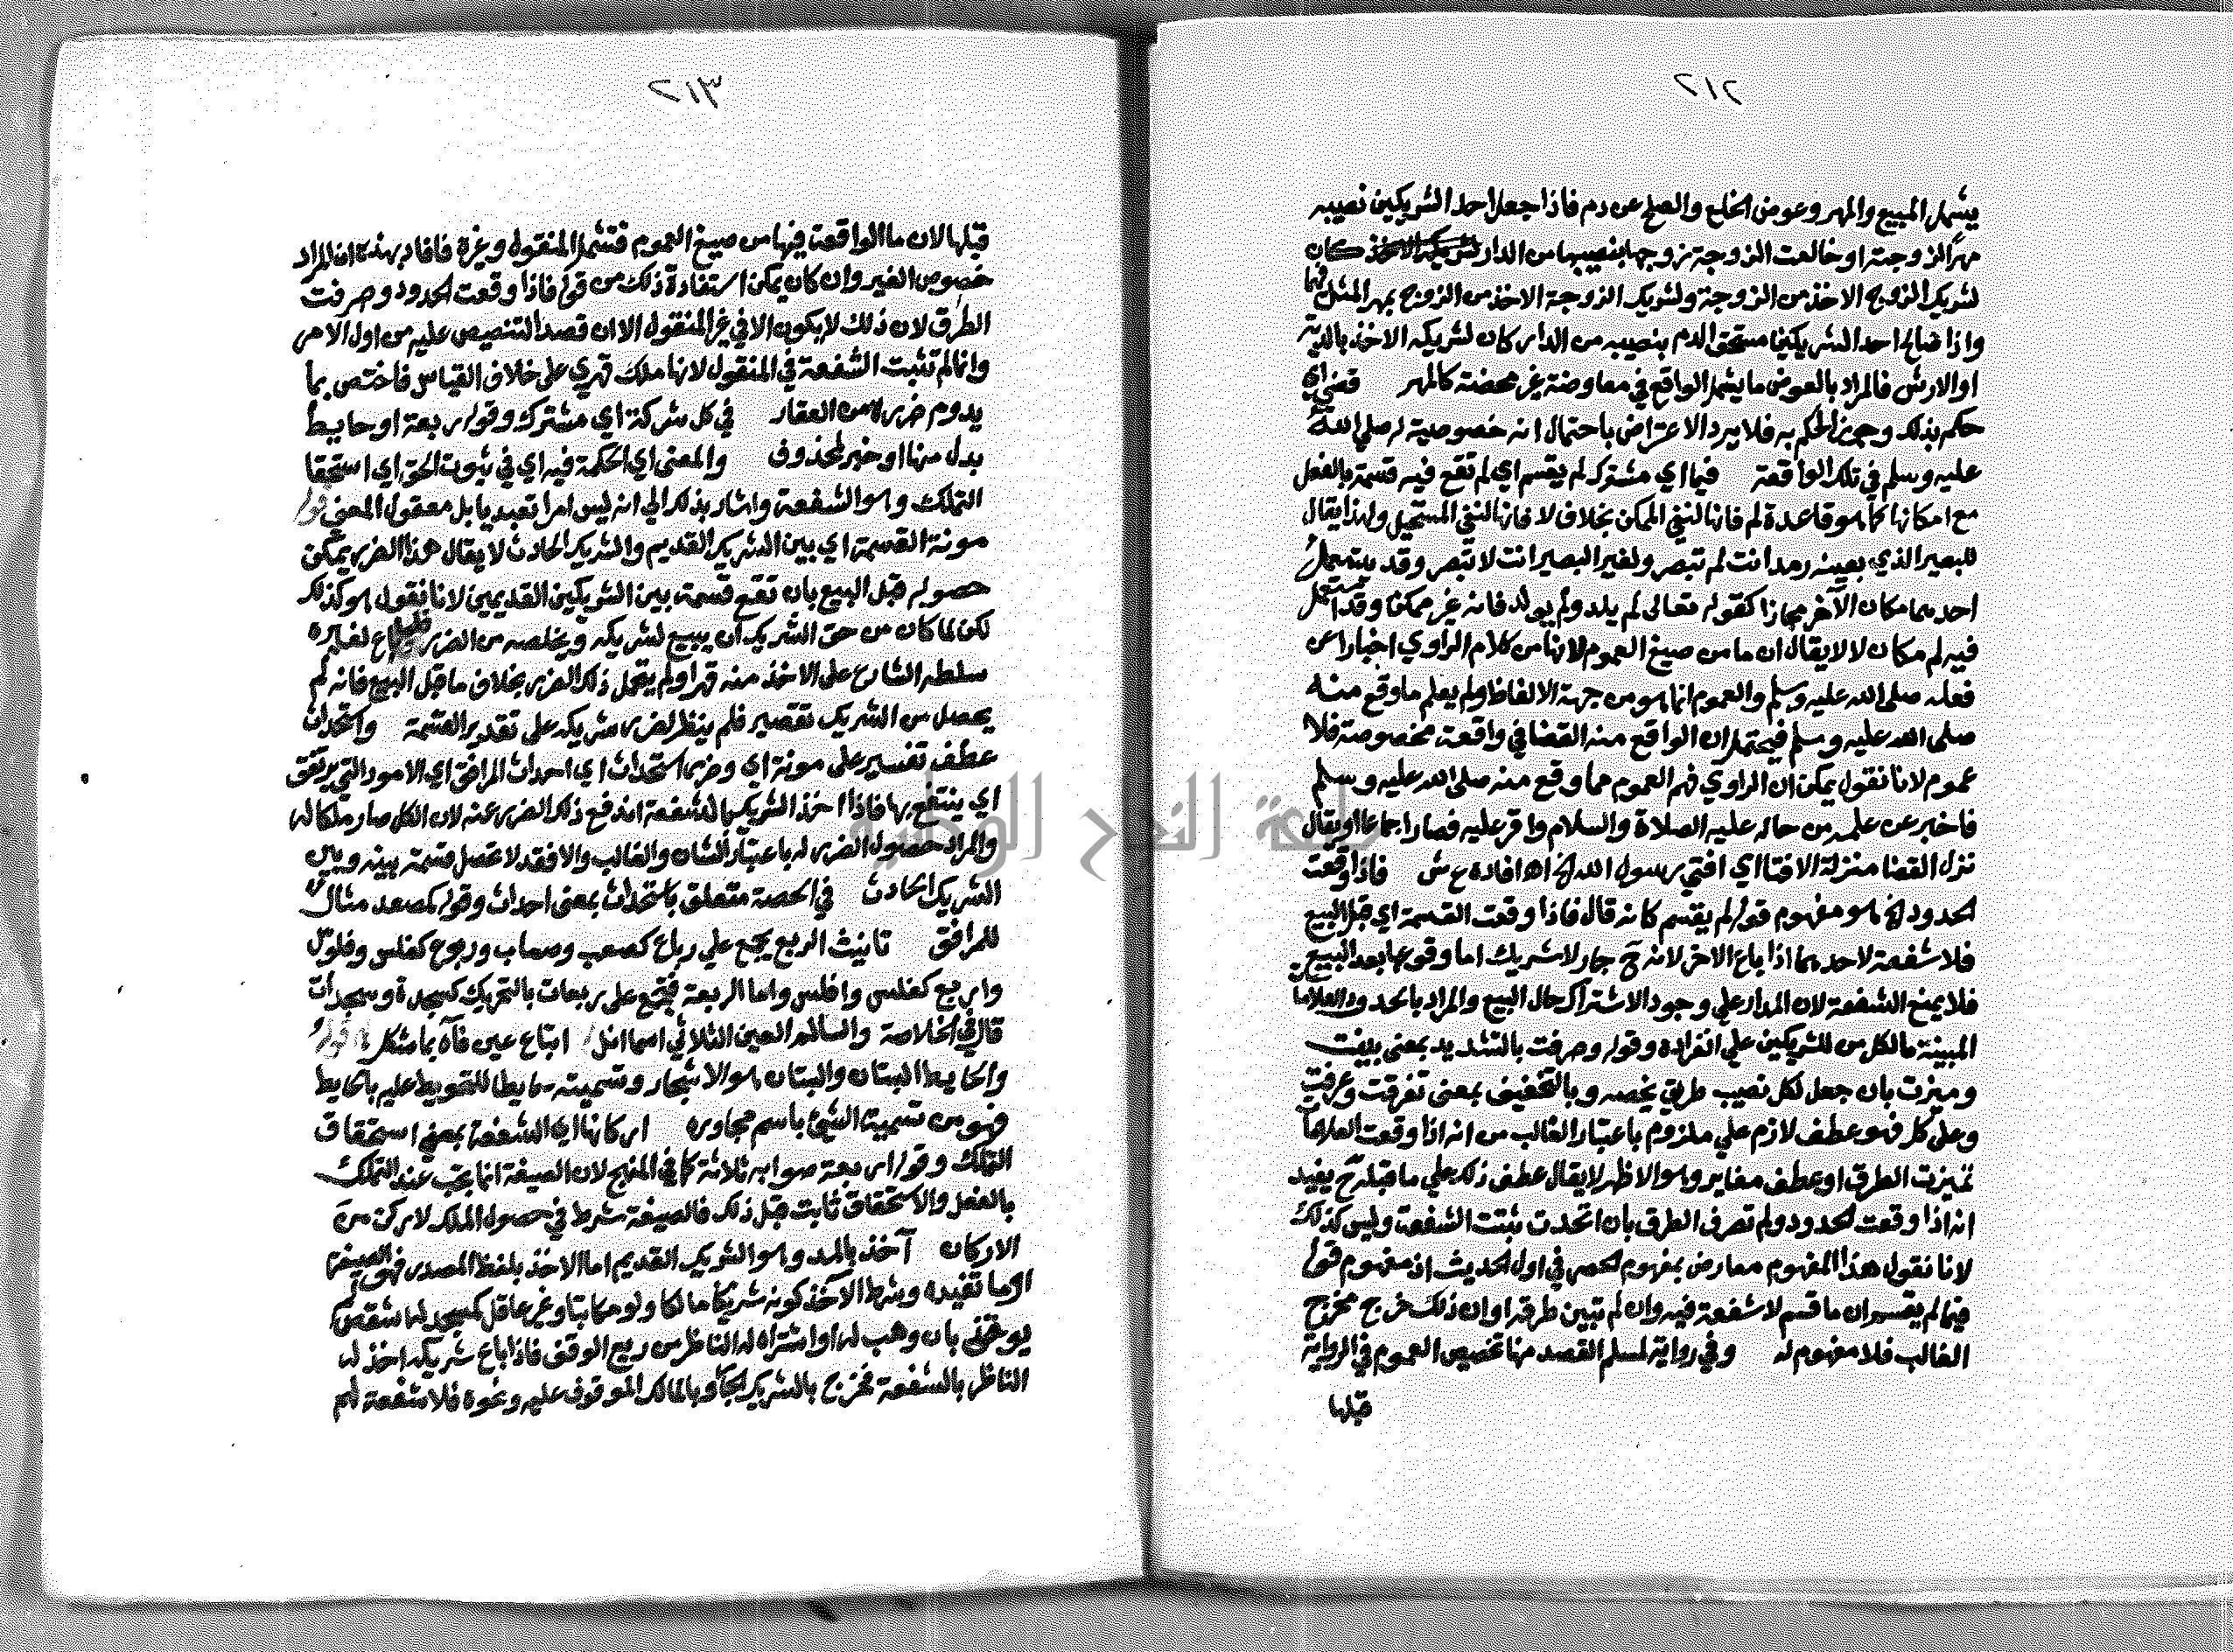 ٢١٢
يشمل المبيع والمهر وعوض الخلع والصلح عن دم فاذا جعل احد الشريكين نصيبه
مهرا لزوجته او خالعت الزوجة زوجها بنصيبها من الدار كان
لشريك الزوج الاخذ من الزوجة ولشريك الزوجة الاخذ من الزوج بمهر المثل فيهما
واذا صالح احد الشريكين مستحق الدم بنصيبه من الدار كان لشريكه الاخذ بالدية
او الارش فالمراد بالعوض ما يشمل الواقع في معاوضة غير محضة كالمهر قضى اي
حكم بذلك وجوز الحكم به فلا يرد الاعتراض باحتمال انه خصوصية له صلى الله
عليه وسلم في تلك الواقعة فيما اي مشترك لم يقسم اي لم تقع فيه قسمة بالفعل
مع امكانها كما هو قاعدة لم فانها لنفي الممكن بخلاف لا فانها لنفي المستحيل ولهذا يقال
للبصير الذي بعينه رمد انت لم تبصر ولغير البصير انت لا تبصر وقد يستعمل
احدهما مكان الآخر مجازا كقوله تعالى لم يلد ولم يولد فانه غير ممكن وقد استعمل
فيه لم مكان لا لا يقال ان ما من صيغ العموم لانها من كلام الراوي اخبارا عن
فعله صلى الله عليه وسلم والعموم انما هو من جهة الالفاظ ولم يعلم ما وقع منه
صلى الله عليه وسلم فيحتمل ان الواقع منه القضا في واقعة مخصوصة فلا
عموم لانا نقول يمكن ان الراوي فهم العموم مما وقع منه صلى الله عليه وسلم
فاخبر عن علمه من حاله عليه الصلاة والسلام واقر عليه فصار اجماعا او يقال
نزل القضا منزلة الافتا اي افتى رسول الله الخ اهـ افاده ع ش فاذا وقعت
الحدود الخ هو مفهوم قوله لم يقسم كانه قال فاذا وقعت القسمة اي قبل البيع
فلا شفعة لاحدهما اذا باع الاخر لانه ح جار لا شريك اما وقوعها بعد البيع
فلا يمنع الشفعة لان المدار على وجود الاشتراك حال البيع والمراد بالحدود العلامات
المبينة ما لكل من الشريكين علي انفراده وقوله وصرفت بالتشديد بمعنى بينت
وميزت بان جعل لكل نصيب طريق يخصه وبالتخفيف بمعنى تفرقت وعرفت
وعلى كل فهو عطف لازم علي ملزوم باعتبار الغالب من انه اذا وقعت العلامات
تميزت الطرق او عطف مغاير وهو الاظهر لا يقال عطف ذلك علي ما قبله ح يفيد
انه اذا وقعت الحدود ولم تصرف الطرق بان اتحدت ثبتت الشفعة وليس كذلك
لانا نقول هذا المفهوم معارض بمفهوم الحصر في اول الحديث اذ مفهوم قوله
فيما لم يقسم ان ما قسم لا شفعة فيه وان لم تبين طرقه او ان ذلك خرج مخرج
الغالب فلا مفهوم له وفي رواية لمسلم القصد منها تخصيص العموم في الرواية
قبلها
٢١٣
قبلها لان ما الواقعة فيها من صيغ العموم فتشمل المنقول وغيره فافاد بهذه ان المراد
خصوص الغير وان كان يمكن استفادة ذلك من قوله فاذا وقعت الحدود وصرفت
الطرق لان ذلك لا يكون الا في غير المنقول الا ان قصد التنصيص عليه من اول الامر
وانما لم تثبت الشفعة في المنقول لانها ملك قهري على خلاف القياس فاختص بما
يدوم ضرره من العقار في كل شركة اي مشترك وقوله ربعة او حايط
بدل منها او خبر لمحذوف والمعنى اي الحكمة فيه اي في ثبوت الحق اي استحقا
التملك وهو الشفعة واشار بذلك الي انه ليس امرا تعبديا بل معقول المعنى قوله
مونة القسمة اي بين الشريك القديم والشريك الحادث لا يقال هذا الضرر يمكن
حصوله قبل البيع بان تقع قسمة بين الشريكين القديمين لانا نقول هو كذلك
لكن لما كان من حق الشريك ان يبيع لشريكه ويخلصه من الضرر باع لغيره
سلطه الشارع على الاخذ منه قهرا ولم يتحمل ذلك الضرر بخلاف ما قبل البيع فانه لم
يحصل من الشريك تقصير فلم ينظر لضرر شريكه على تقدير القسمة واستحداث
عطف تفسير على مونة اي وضرر استحداث اي احداث المرافق اي الامور التي يرتفق
اي ينتفع بها فاذا اخذ الشريك بالشفعة اندفع ذلك الضرر عنه لان الكل صار ملكا له
والمراد حصول الضرر له باعتبار الشان والغالب والا فقد لا تحصل قسمة بينه وبين
الشريك الحادث في الحصة متعلق باستحداث بمعنى احداث وقوله كمصعد مثال
للمرافق تانيث الربع يجمع علي رباع كصعب وصعاب وربوع كفلس وفلوس
واربع كفلس وافلس واما الربعة فتجمع على ربعات بالتحريك كسجدة وسجدات
قال في الخلاصة والسالم العين الثلاثي اسما انل اتباع عين فآه بما شكل قوله
والحايط البستان والبستان هو الاشجار وتسميته حايطا للتحويط عليه بالحايط
فهو من تسمية الشئ باسم مجاوره اركانها اي الشفعة بمعنى استحقاق
التملك وقوله اربعة صوابه ثلاثة كما في المنهج لان الصيغة انما تجب عند التملك
بالفعل والاستحقاق ثابت قبل ذلك فالصيغة شرط في حصول الملك لا ركن من
الاركان آخذ بالمد وهو الشريك القديم اما الاخذ بلفظ المصدر فهو الصيغة
او ما تفيده وشرط الآخذ كونه شريكا مالكا ولو مكاتبا وغير عاقل كمسجد له شقص
لم يوقف بان وهب له او اشتراه له الناظر من ريع الوقف فاذا باع شريكه اخذ له
الناظر بالشفعة فخرج بالشريك الجار وبالمالك الموقوف عليه ونحوه فلا شفعة لهم